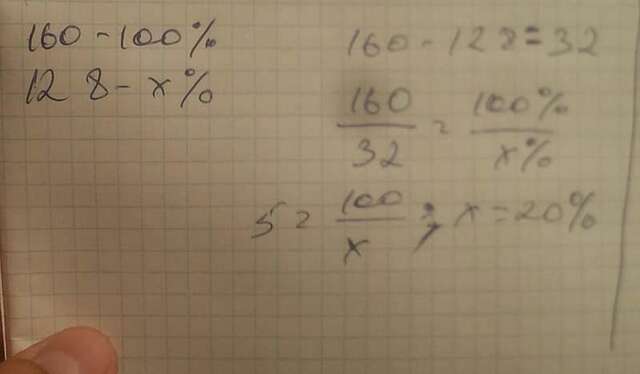 160 - 100%
128 - x%
160 - 128 = 32
160/32 = 100%/x%
5 = 100/x ; x = 20%